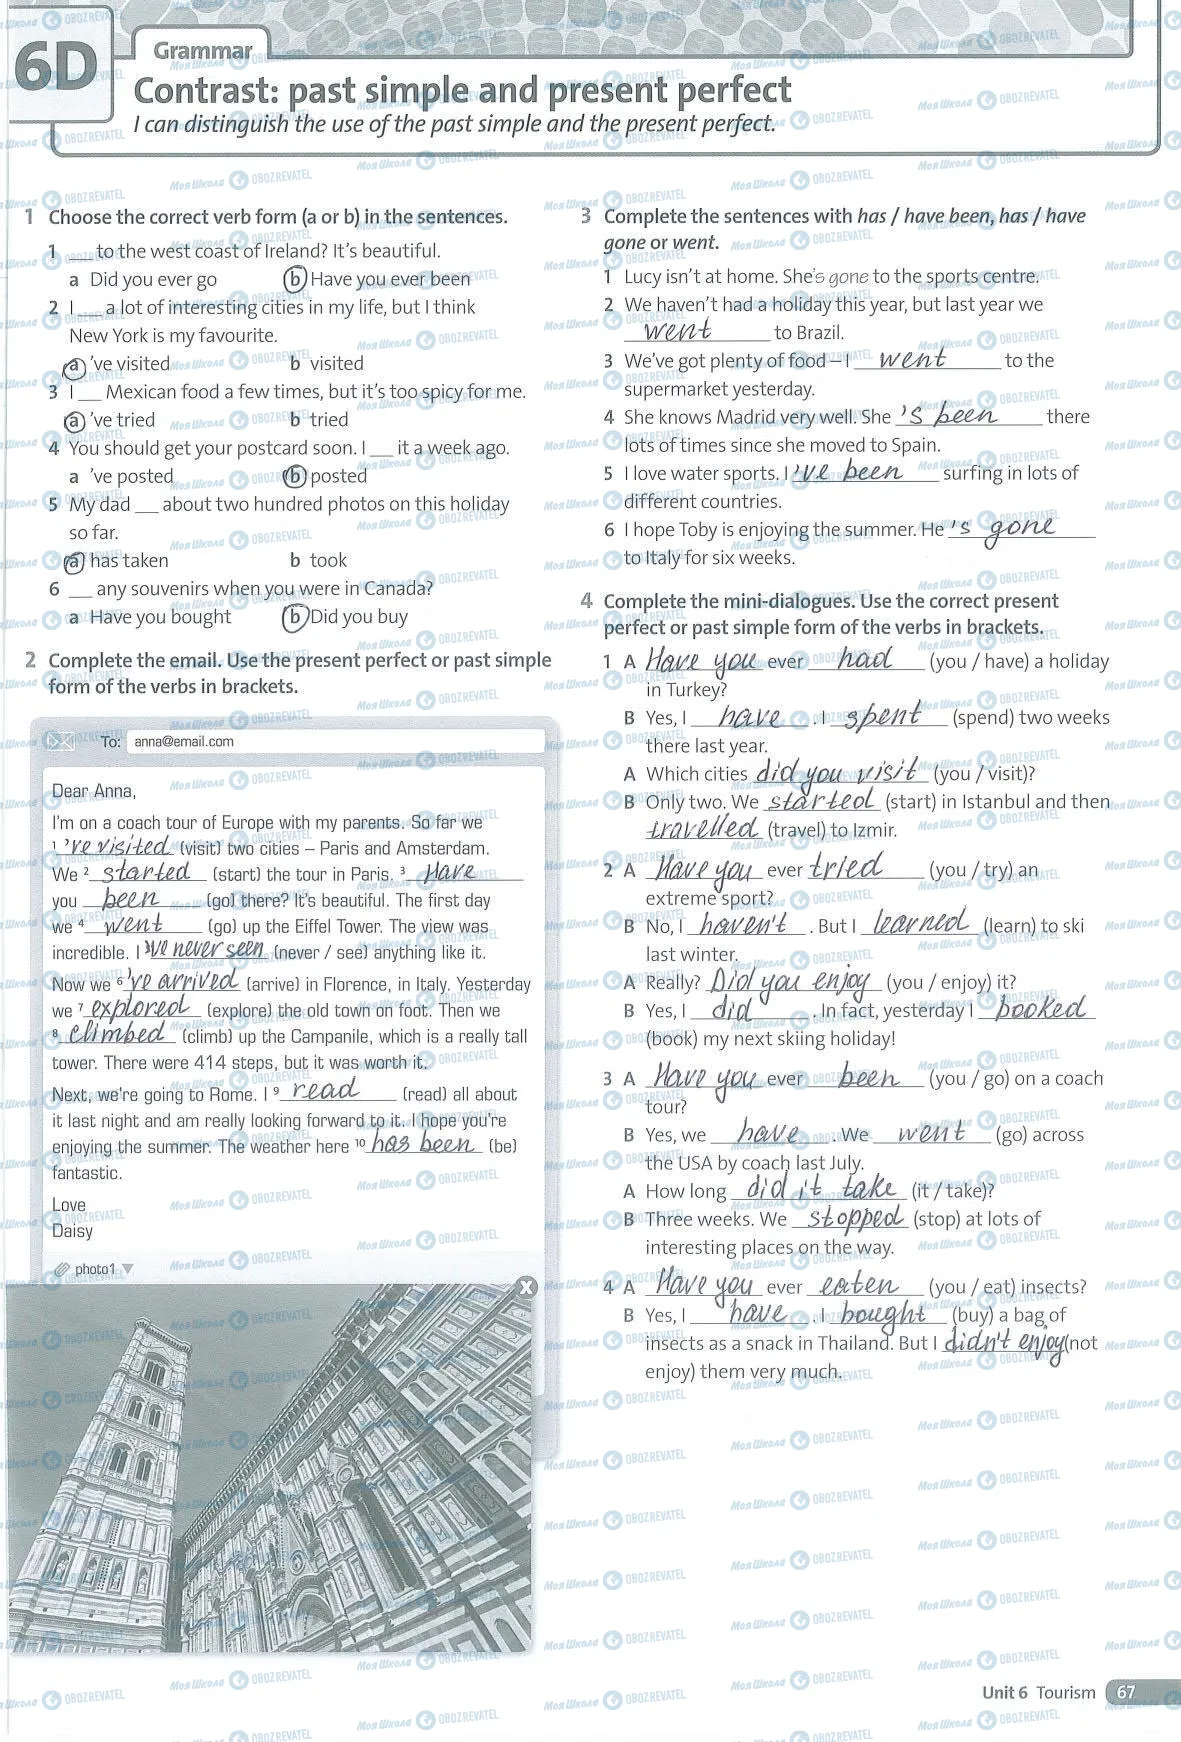 6D
Grammar
Contrast: past simple and present perfect
I can distinguish the use of the past simple and the present perfect.
1 Choose the correct verb form (a or b) in the sentences.
1 ___ to the west coast of Ireland? It's beautiful.
a Did you ever go b Have you ever been
2 I ___ a lot of interesting cities in my life, but I think
New York is my favourite.
a 've visited b visited
3 I ___ Mexican food a few times, but it's too spicy for me.
a 've tried b tried
4 You should get your postcard soon. I ___ it a week ago.
a 've posted b posted
5 My dad ___ about two hundred photos on this holiday
so far.
a has taken b took
6 ___ any souvenirs when you were in Canada?
a Have you bought b Did you buy
2 Complete the email. Use the present perfect or past simple
form of the verbs in brackets.
To: anna@email.com
Dear Anna,
I'm on a coach tour of Europe with my parents. So far we
1 've visited (visit) two cities – Paris and Amsterdam.
We 2 started (start) the tour in Paris. 3 Have
you been (go) there? It's beautiful. The first day
we 4 went (go) up the Eiffel Tower. The view was
incredible. I 5 've never seen (never / see) anything like it.
Now we 6 've arrived (arrive) in Florence, in Italy. Yesterday
we 7 explored (explore) the old town on foot. Then we
8 climbed (climb) up the Campanile, which is a really tall
tower. There were 414 steps, but it was worth it.
Next, we're going to Rome. I 9 read (read) all about
it last night and am really looking forward to it. I hope you're
enjoying the summer. The weather here 10 has been (be)
fantastic.
Love
Daisy
photo1
X
3 Complete the sentences with has / have been, has / have
gone or went.
1 Lucy isn't at home. She's gone to the sports centre.
2 We haven't had a holiday this year, but last year we
went to Brazil.
3 We've got plenty of food – I went to the
supermarket yesterday.
4 She knows Madrid very well. She 's been there
lots of times since she moved to Spain.
5 I love water sports. I 've been surfing in lots of
different countries.
6 I hope Toby is enjoying the summer. He 's gone
to Italy for six weeks.
4 Complete the mini-dialogues. Use the correct present
perfect or past simple form of the verbs in brackets.
1 A Have you ever had (you / have) a holiday
in Turkey?
B Yes, I have. I spent (spend) two weeks
there last year.
A Which cities did you visit (you / visit)?
B Only two. We started (start) in Istanbul and then
travelled (travel) to Izmir.
2 A Have you ever tried (you / try) an
extreme sport?
B No, I haven't. But I learned (learn) to ski
last winter.
A Really? Did you enjoy (you / enjoy) it?
B Yes, I did. In fact, yesterday I booked
(book) my next skiing holiday!
3 A Have you ever been (you / go) on a coach
tour?
B Yes, we have. We went (go) across
the USA by coach last July.
A How long did it take (it / take)?
B Three weeks. We stopped (stop) at lots of
interesting places on the way.
4 A Have you ever eaten (you / eat) insects?
B Yes, I have. I bought (buy) a bag of
insects as a snack in Thailand. But I didn't enjoy (not
enjoy) them very much.
Unit 6 Tourism 67
Моя Школа OBOZREVATEL